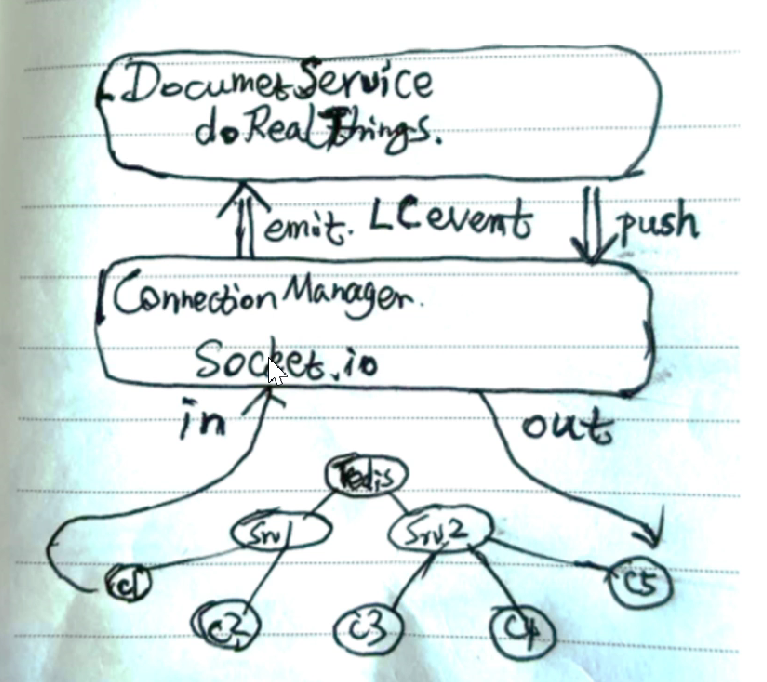 Documet Service
do Real Things.
emit. LC event
push
Connection Manager.
Socket.io
in
out
Redis
Srv1
Srv2
c1
c2
c3
C4
C5